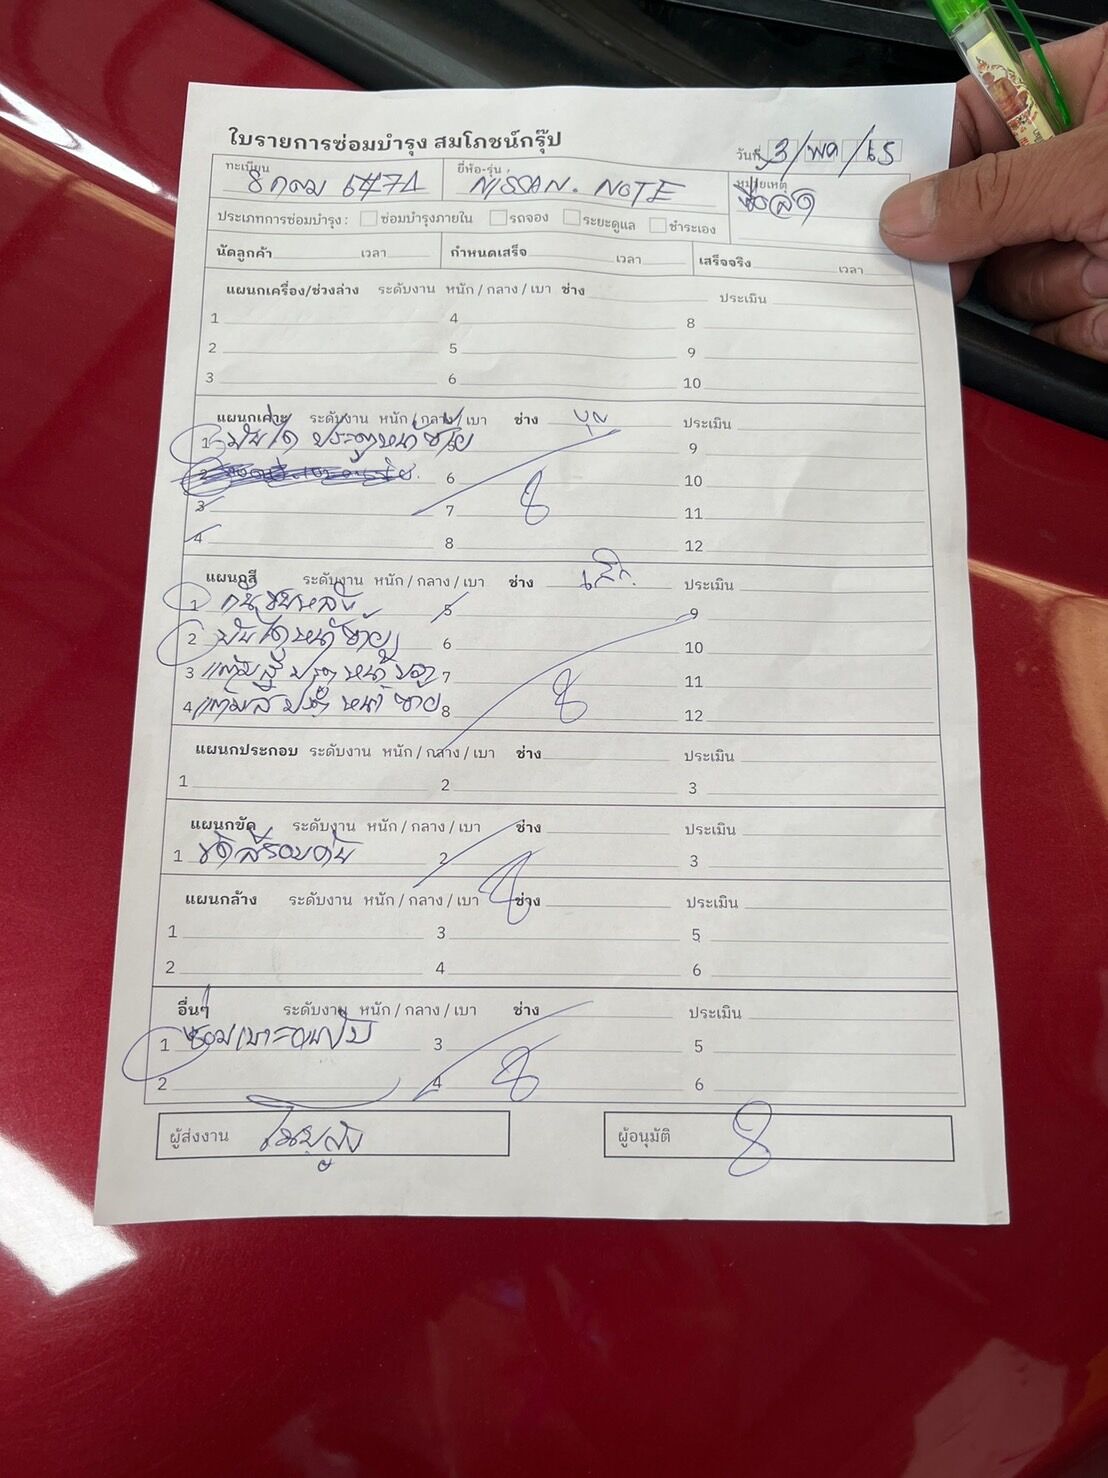 ใบรายการซ่อมบำรุง สมโภชน์กรุ๊ป
วันที่ 3/พค/65
ทะเบียน ยี่ห้อ-รุ่น NISSAN. NOTE หมายเหตุ ซื้อสด
ประเภทการซ่อมบำรุง : ซ่อมบำรุงภายใน รถจอง ระยะดูแล ชำระเอง
นัดลูกค้า เวลา กำหนดเสร็จ เวลา เสร็จจริง เวลา
แผนกเครื่อง/ช่วงล่าง ระดับงาน หนัก / กลาง / เบา ช่าง ประเมิน
1 4 8
2 5 9
3 6 10
แผนกเคาะ ระดับงาน หนัก / กลาง / เบา ช่าง ประเมิน
1 บันได ประตูหน้าซ้าย 9
2 6 10
3 7 11
4 8 12
แผนกสี ระดับงาน หนัก / กลาง / เบา ช่าง เล็ก ประเมิน
1 กันชนหลัง 5 9
2 บันไดหน้าซ้าย 6 10
3 แต้มสีประตูหน้าขวา 7 11
4 แต้มสีประตูหน้าซ้าย 8 12
แผนกประกอบ ระดับงาน หนัก / กลาง / เบา ช่าง ประเมิน
1 2 3
แผนกขัด ระดับงาน หนัก / กลาง / เบา ช่าง ประเมิน
1 ขัดสีรอบคัน 2 3
แผนกล้าง ระดับงาน หนัก / กลาง / เบา ช่าง ประเมิน
1 3 5
2 4 6
อื่นๆ ระดับงาน หนัก / กลาง / เบา ช่าง ประเมิน
1 ซ่อมเบาะคนขับ 3 5
2 4 6
ผู้ส่งงาน ผู้อนุมัติ